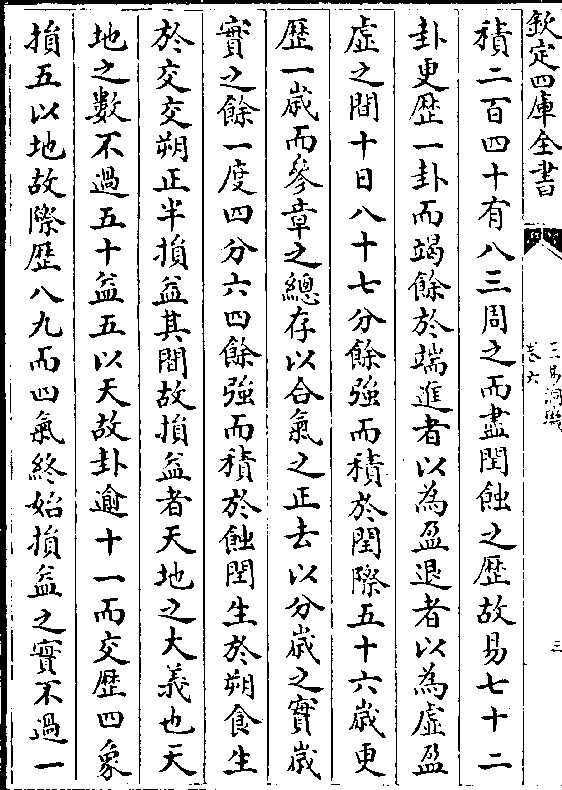 欽定四庫全書
三易洞璣
卷六
三
積二百四十有八三周之而盡閏蝕之歴故易七十二
卦更歴一卦而竭餘於端進者以為盈退者以為虛盈
虛之間十日八十七分餘強而積於閏際五十六歲更
歴一歲而參章之總存以合氣之正去以分歲之實歲
實之餘一度四分六四餘強而積於蝕閏生於朔食生
於交交朔正半損益其間故損益者天地之大義也天
地之數不過五十益五以天故卦逾十一而交歴四象
損五以地故際歴八九而四氣終始損益之實不過一